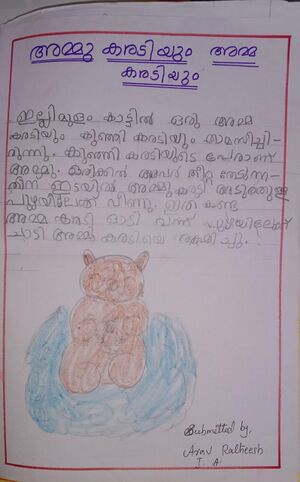 അമ്മു കരടിയും അമ്മ
കരടിയും
ഇല്ലിമുളം കാട്ടിൽ ഒരു അമ്മ
കരടിയും കുഞ്ഞി കരടിയും താമസിച്ചി-
രുന്നു. കുഞ്ഞി കരടിയുടെ പേരാണ്
അമ്മു. കരിക്കിൻ അവർ തീറ്റ തേടുന്ന-
തിന് ഇടയിൽ അമ്മു കരടി അടുത്തുള്ള
പുഴയിലേത്ത് വീണു. ഇത് കണ്ട
അമ്മ കരടി ഓടി വന്ന് പുഴയിലേക്ക്
ചാടി അമ്മു കരടിയെ രക്ഷിച്ചു.
Submitted by,
Arav Ratheesh
I. A